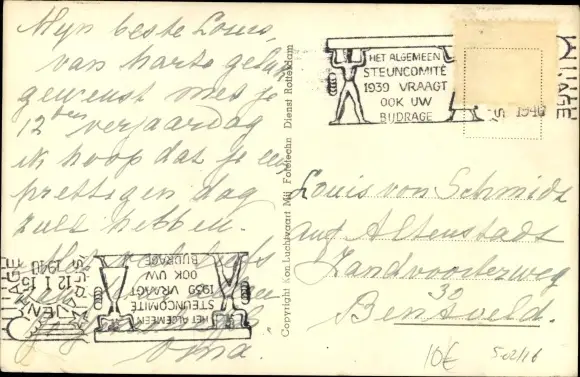 Mijn beste Louis,
van harte geluk
gewenst met je
12den verjaardag
ik hoop dat je een
prettigen dag
zult hebben.
Oma.
Copyright Kon Luchtvaart Mij Fototechn Dienst Rotterdam
HET ALGEMEEN
STEUNCOMITÉ
1939 VRAAGT
OOK UW
BIJDRAGE
1940
Louis von Schmidt
auf Altenstadt
Zandvoorterweg
30
Bentveld.
HET ALGEMEEN
STEUNCOMITÉ
1939 VRAAGT
OOK UW
BIJDRAGE
12 I 15
1940
10€